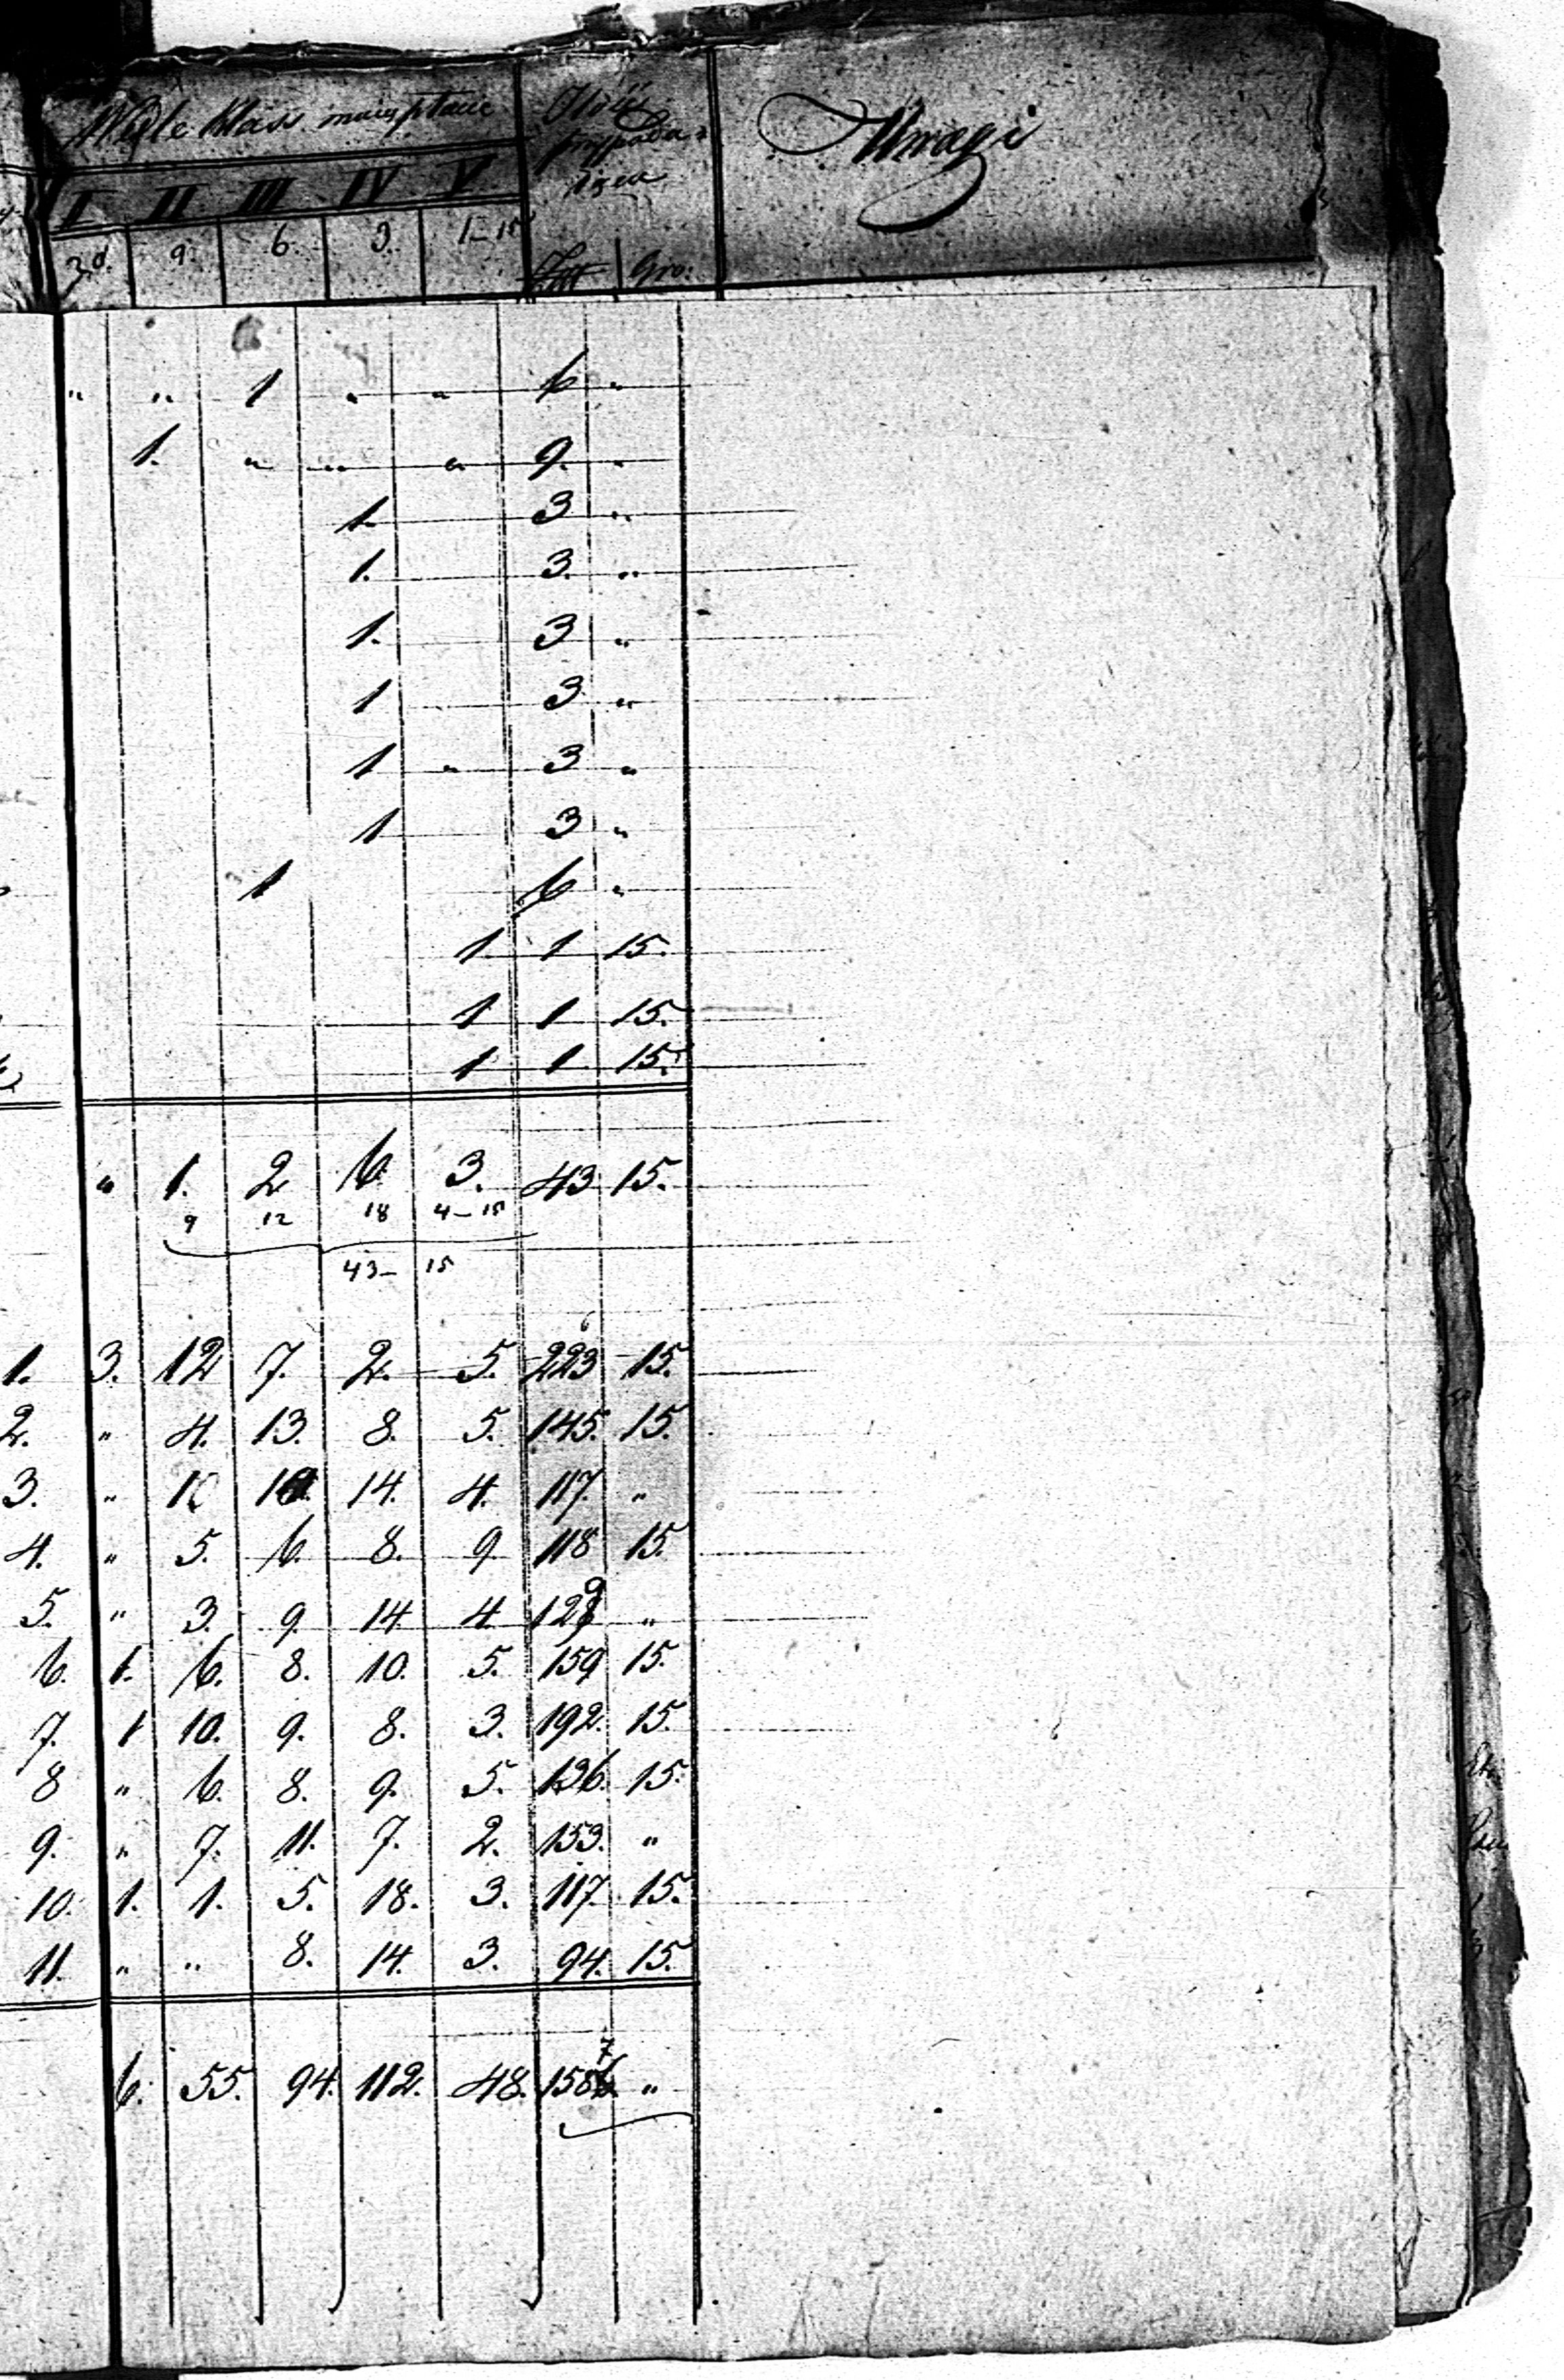 Wedle klass mają płacić
Uwagi
I II III IV V
9. 6. 3. 1-15
Gro:
" " 1 " " 6 "
1. " " " 9. "
1. 3 "
1. 3. "
1. 3 "
1 3 "
1 " 3 "
1 3 "
1 6 "
1. 1 15.
1 1 15.
1 1 15.
" 1. 2 6 3. 43 15.
9 12 18 4-15
43- 15
1. 3. 12 7. 2. 5. 223 15.
2. " 4. 13. 8. 5. 145. 15.
3. " 14. 4. 117. "
4. " 5. 6. 8. 9 118 15.
5. " 3. 9. 14 4 129 "
6. 1. 6. 8. 10. 5. 159 15.
7. 1 10. 9. 8. 3. 192. 15.
8 " 6. 8. 9. 5. 136. 15.
9. " 7. 11. 7. 2. 153. "
10. 1. 1. 5. 18. 3. 117. 15.
11. " " 8. 14. 3. 94. 15.
6. 55. 94. 112. 48. 1587 "